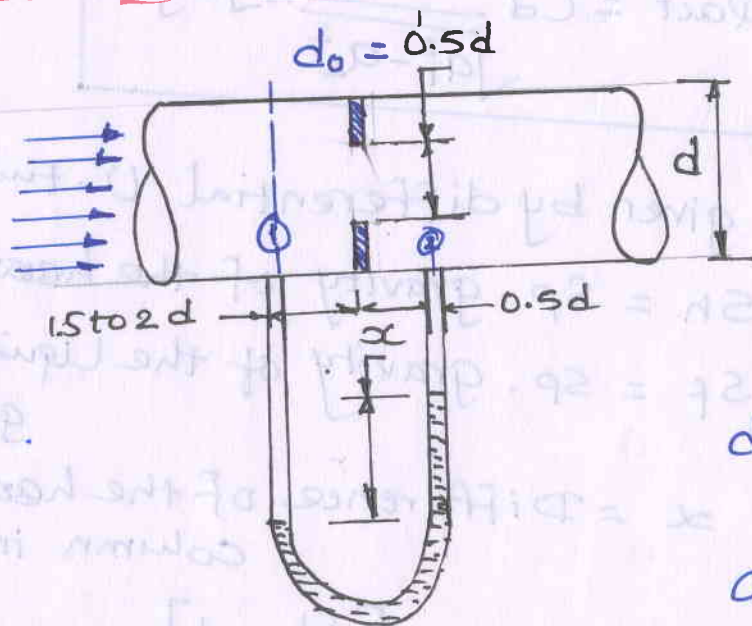 d₀ = 0.5d
d
①
②
1.5 to 2 d
0.5d
x